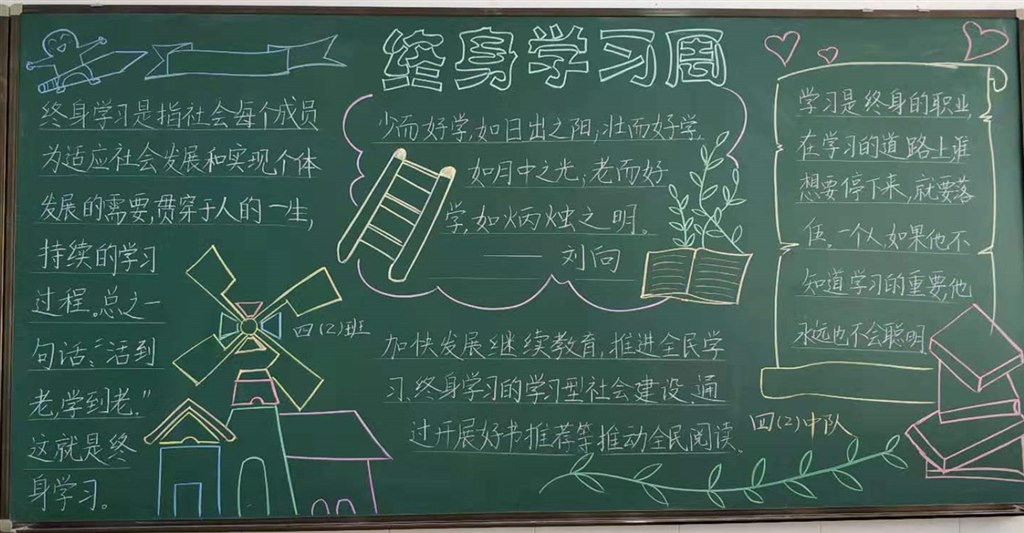 终身学习周
终身学习是指社会每个成员
为适应社会发展和实现个体
发展的需要,贯穿于人的一生,
持续的学习
过程。总之一
句话:“活到
老,学到老。”
这就是终
身学习。
四(2)班
少而好学,如日出之阳;壮而好学,
如月中之光;老而好
学,如炳烛之明。
——刘向
加快发展继续教育,推进全民学
习、终身学习的学习型社会建设、通
过开展好书推荐等推动全民阅读、
学习是终身的职业,
在学习的道路上,谁
想要停下来,就要落
伍。一个人,如果他不
知道学习的重要,他
永远也不会聪明
四(2)中队